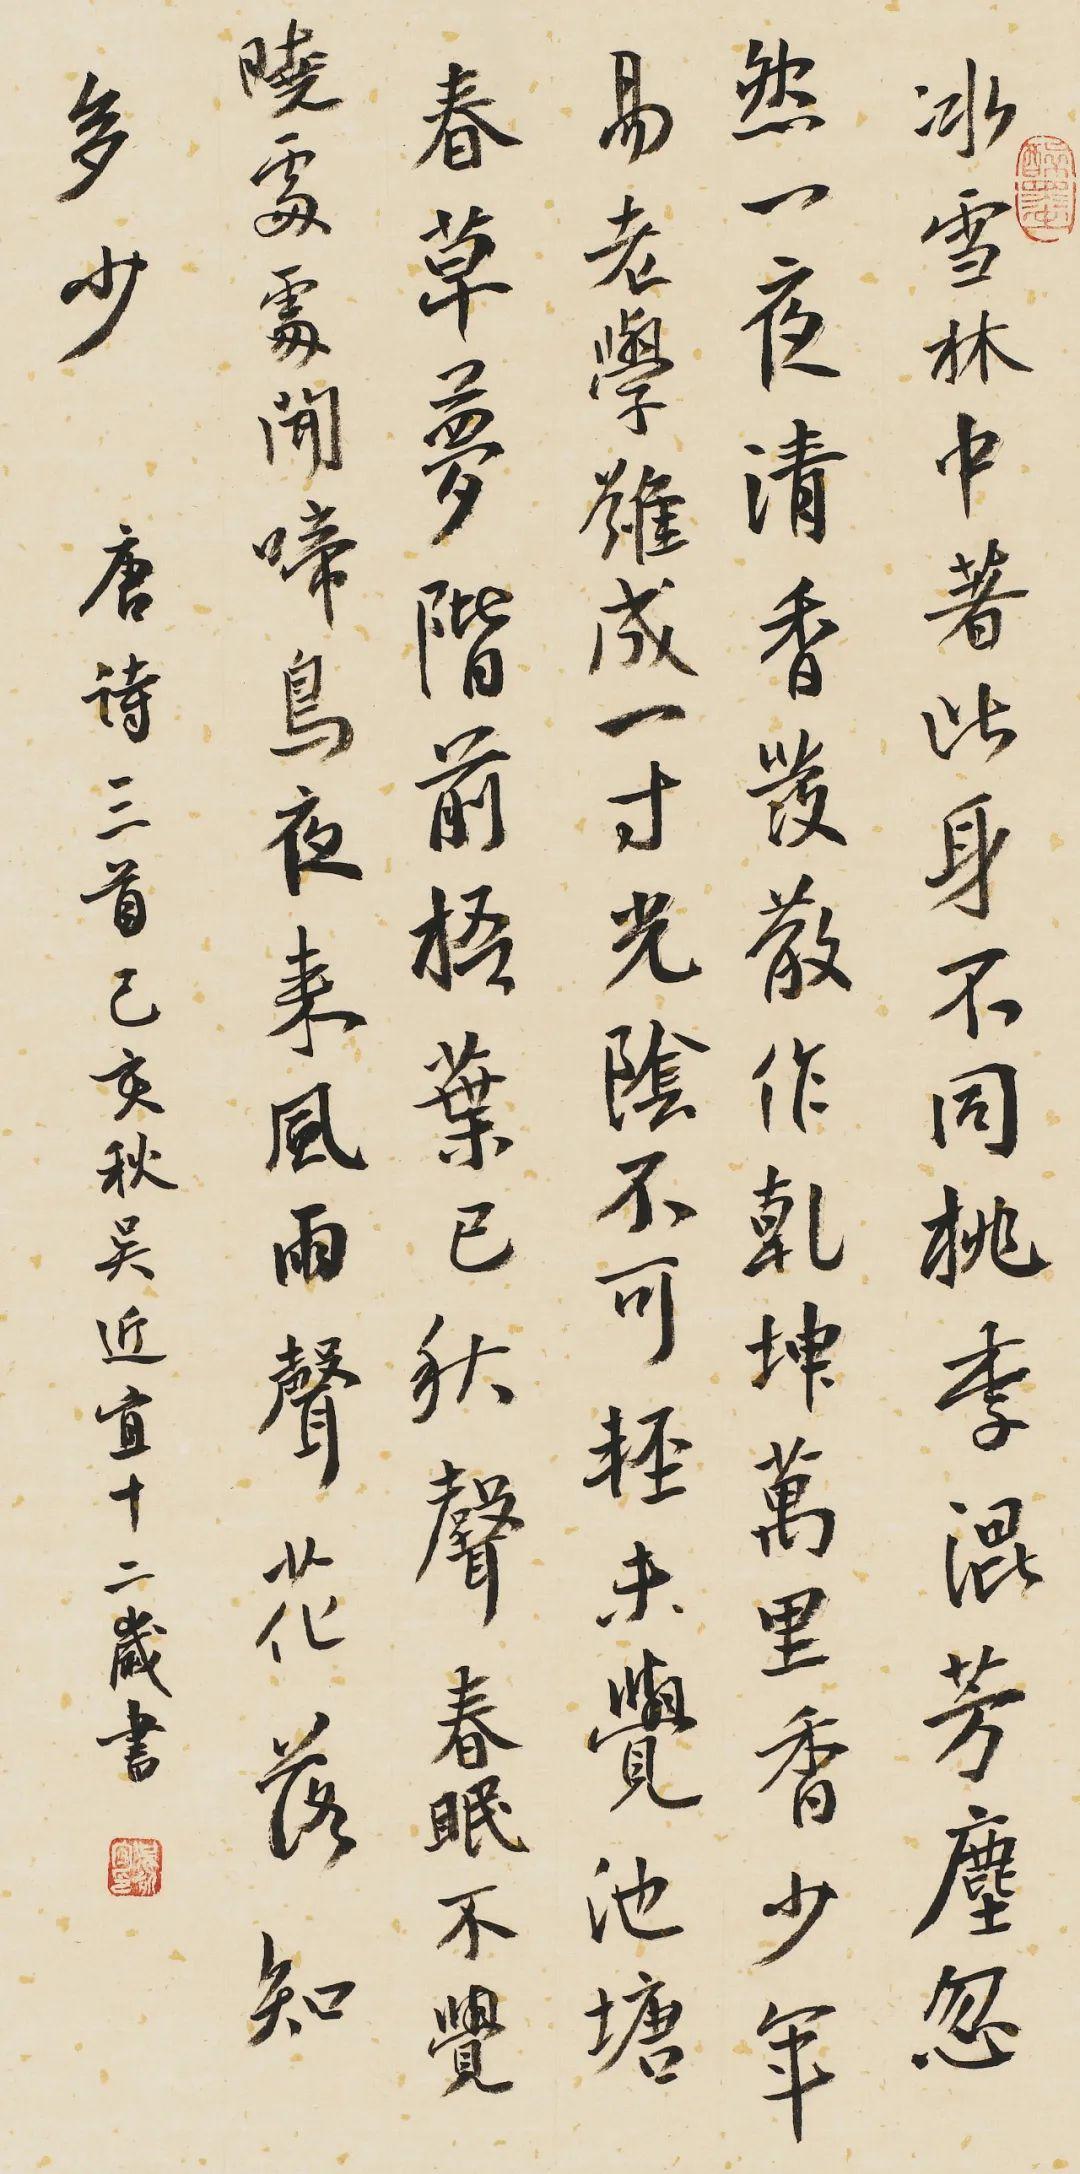 冰雪林中著此身不同桃李混芳塵忽
然一夜清香發散作乾坤萬里香少年
易老學難成一寸光陰不可輕未覺池塘
春草夢階前梧葉已秋聲春眠不覺
曉處處聞啼鳥夜来風雨聲花落知
多少
唐詩三首己亥秋吴近宜十二歲書